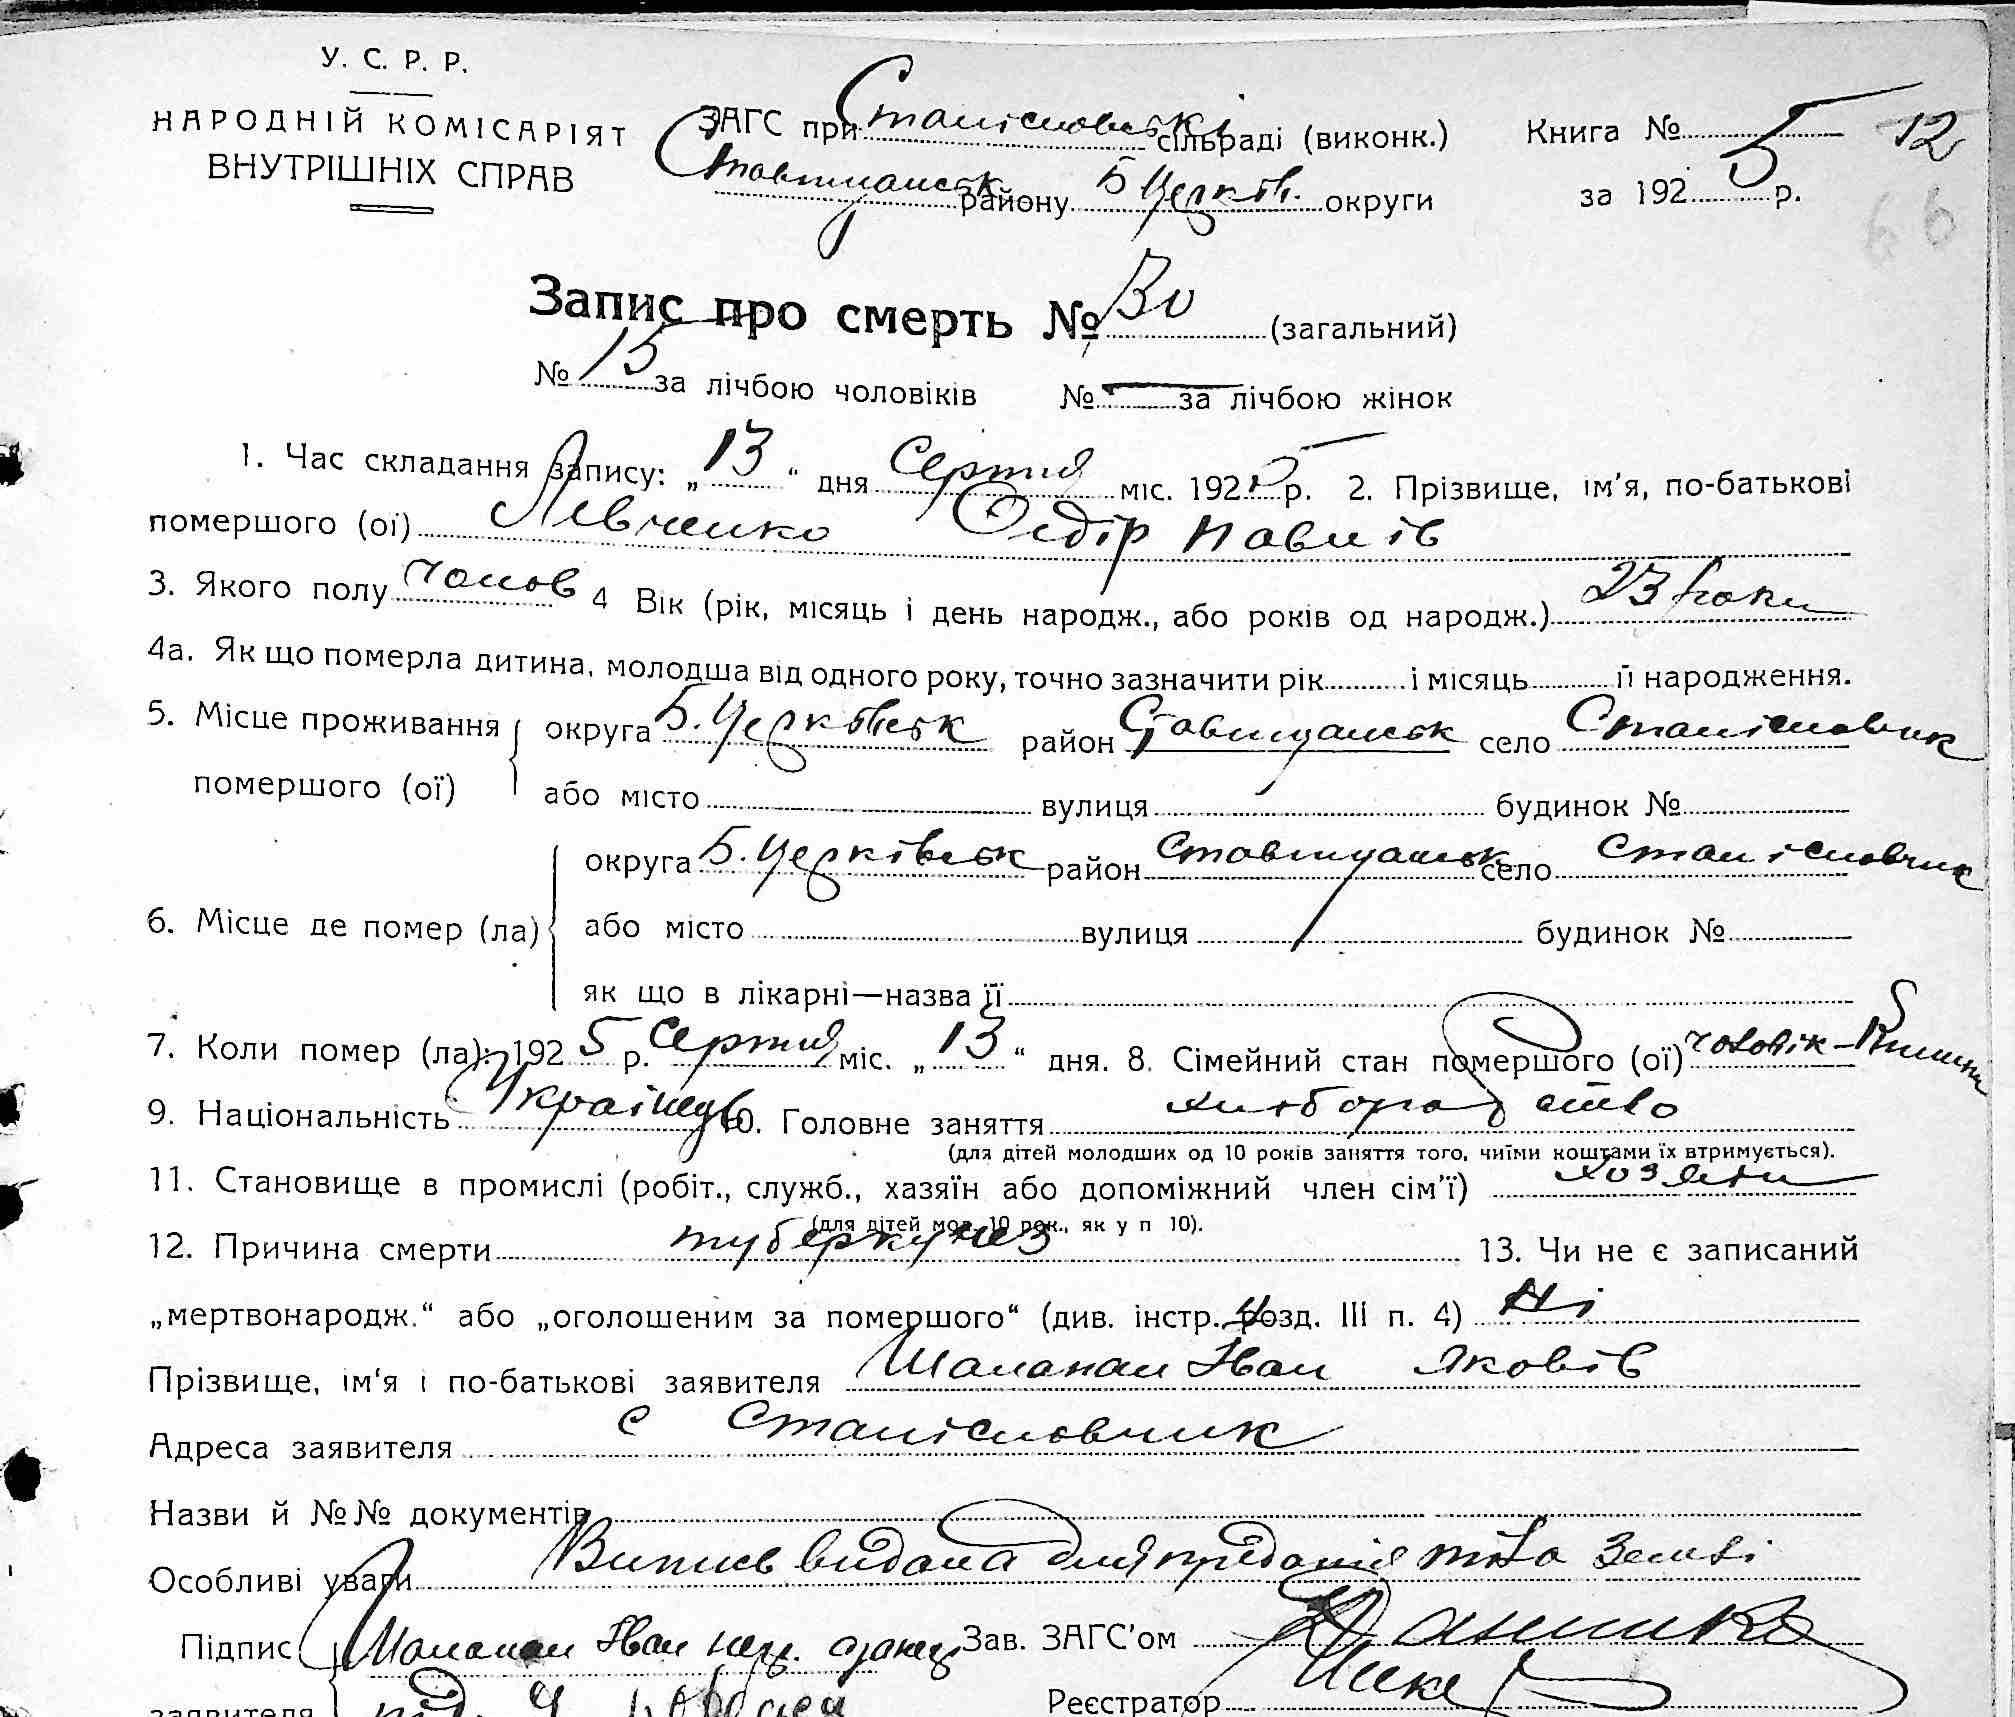 У. С. Р. Р.
НАРОДНІЙ КОМІСАРІЯТ
ВНУТРІШНІХ СПРАВ
ЗАГС при Станіславські сільраді (виконк.)
Ставищанськ району Б Церків. округи
Книга № 5
за 1925 р.
12
66
Запис про смерть № 30 (загальний)
№ 15 за лічбою чоловіків № — за лічбою жінок
1. Час складання запису: „ 13 “ дня Серпня міс. 1925 р. 2. Прізвище, ім'я, по-батькові
помершого (ої) Левченко Федір Павлів
3. Якого полу Чолов 4 Вік (рік, місяць і день народж., або років од народж.) 23 роки
4а. Як що померла дитина, молодша від одного року, точно зазначити рік і місяць її народження.
5. Місце проживання помершого (ої) округа Б. Церківськ район Ставищанськ село Станіславчик
або місто вулиця будинок №
6. Місце де помер (ла) округа Б. Церківськ район Ставищанськ село Станіславчик
або місто вулиця будинок №
як що в лікарні—назва її
7. Коли помер (ла): 1925 р. Серпня міс. „ 13 “ дня. 8. Сімейний стан помершого (ої) чоловік
9. Національність Українець 10. Головне заняття хліборобство
(для дітей молодших од 10 років заняття того, чиїми коштами їх втримується).
11. Становище в промислі (робіт., служб., хазяїн або допоміжний член сім'ї) хозяїн
(для дітей мол. 10 рок., як у п 10).
12. Причина смерти туберкульоз 13. Чи не є записаний
„мертвонародж.“ або „оголошеним за помершого“ (див. інстр. розд. III п. 4) Ні
Прізвище, ім'я і по-батькові заявителя Шаланан Іван Яковів
Адреса заявителя с Станіславчик
Назви й №№ документів
Особливі уваги Випись видана для предання тіла Землі
Підпис Шаланан Іван Зав. ЗАГС'ом
заявителя Реєстратор